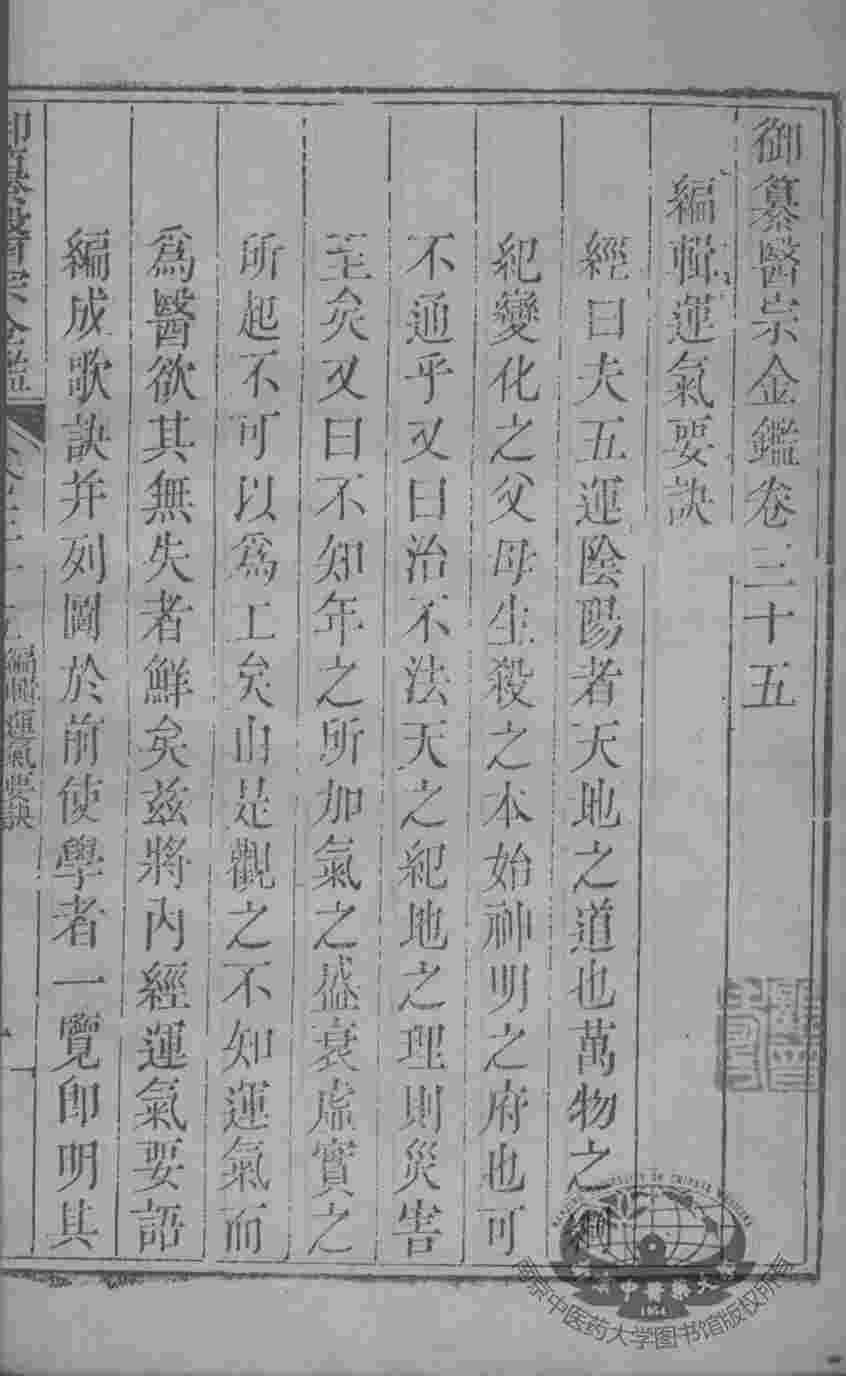 御纂醫宗金鑑卷三十五
編輯運氣要訣
經曰夫五運陰陽者天地之道也萬物之綱
紀變化之父母生殺之本始神明之府也可
不通乎又曰治不法天之紀地之理則災害
至矣又曰不知年之所加氣之盛衰虛實之
所起不可以爲工矣由是觀之不知運氣而
爲醫欲其無失者鮮矣兹將內經運氣要語
編成歌訣并列圖於前使學者一覽即明其
御纂醫宗金鑑
編輯運氣要訣
南京中医药大学图书馆版权所有
1954